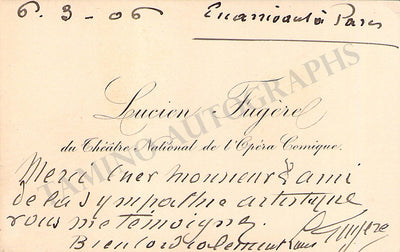 6. 3 - 06
En arrivant à Paris
Lucien Fugère
du Théâtre National de l'Opéra Comique.
Merci cher monsieur & ami
de la sympathie artistique
vous me temoignez.
Bien cordialement
L Fugère
TAMINO AUTOGRAPHS